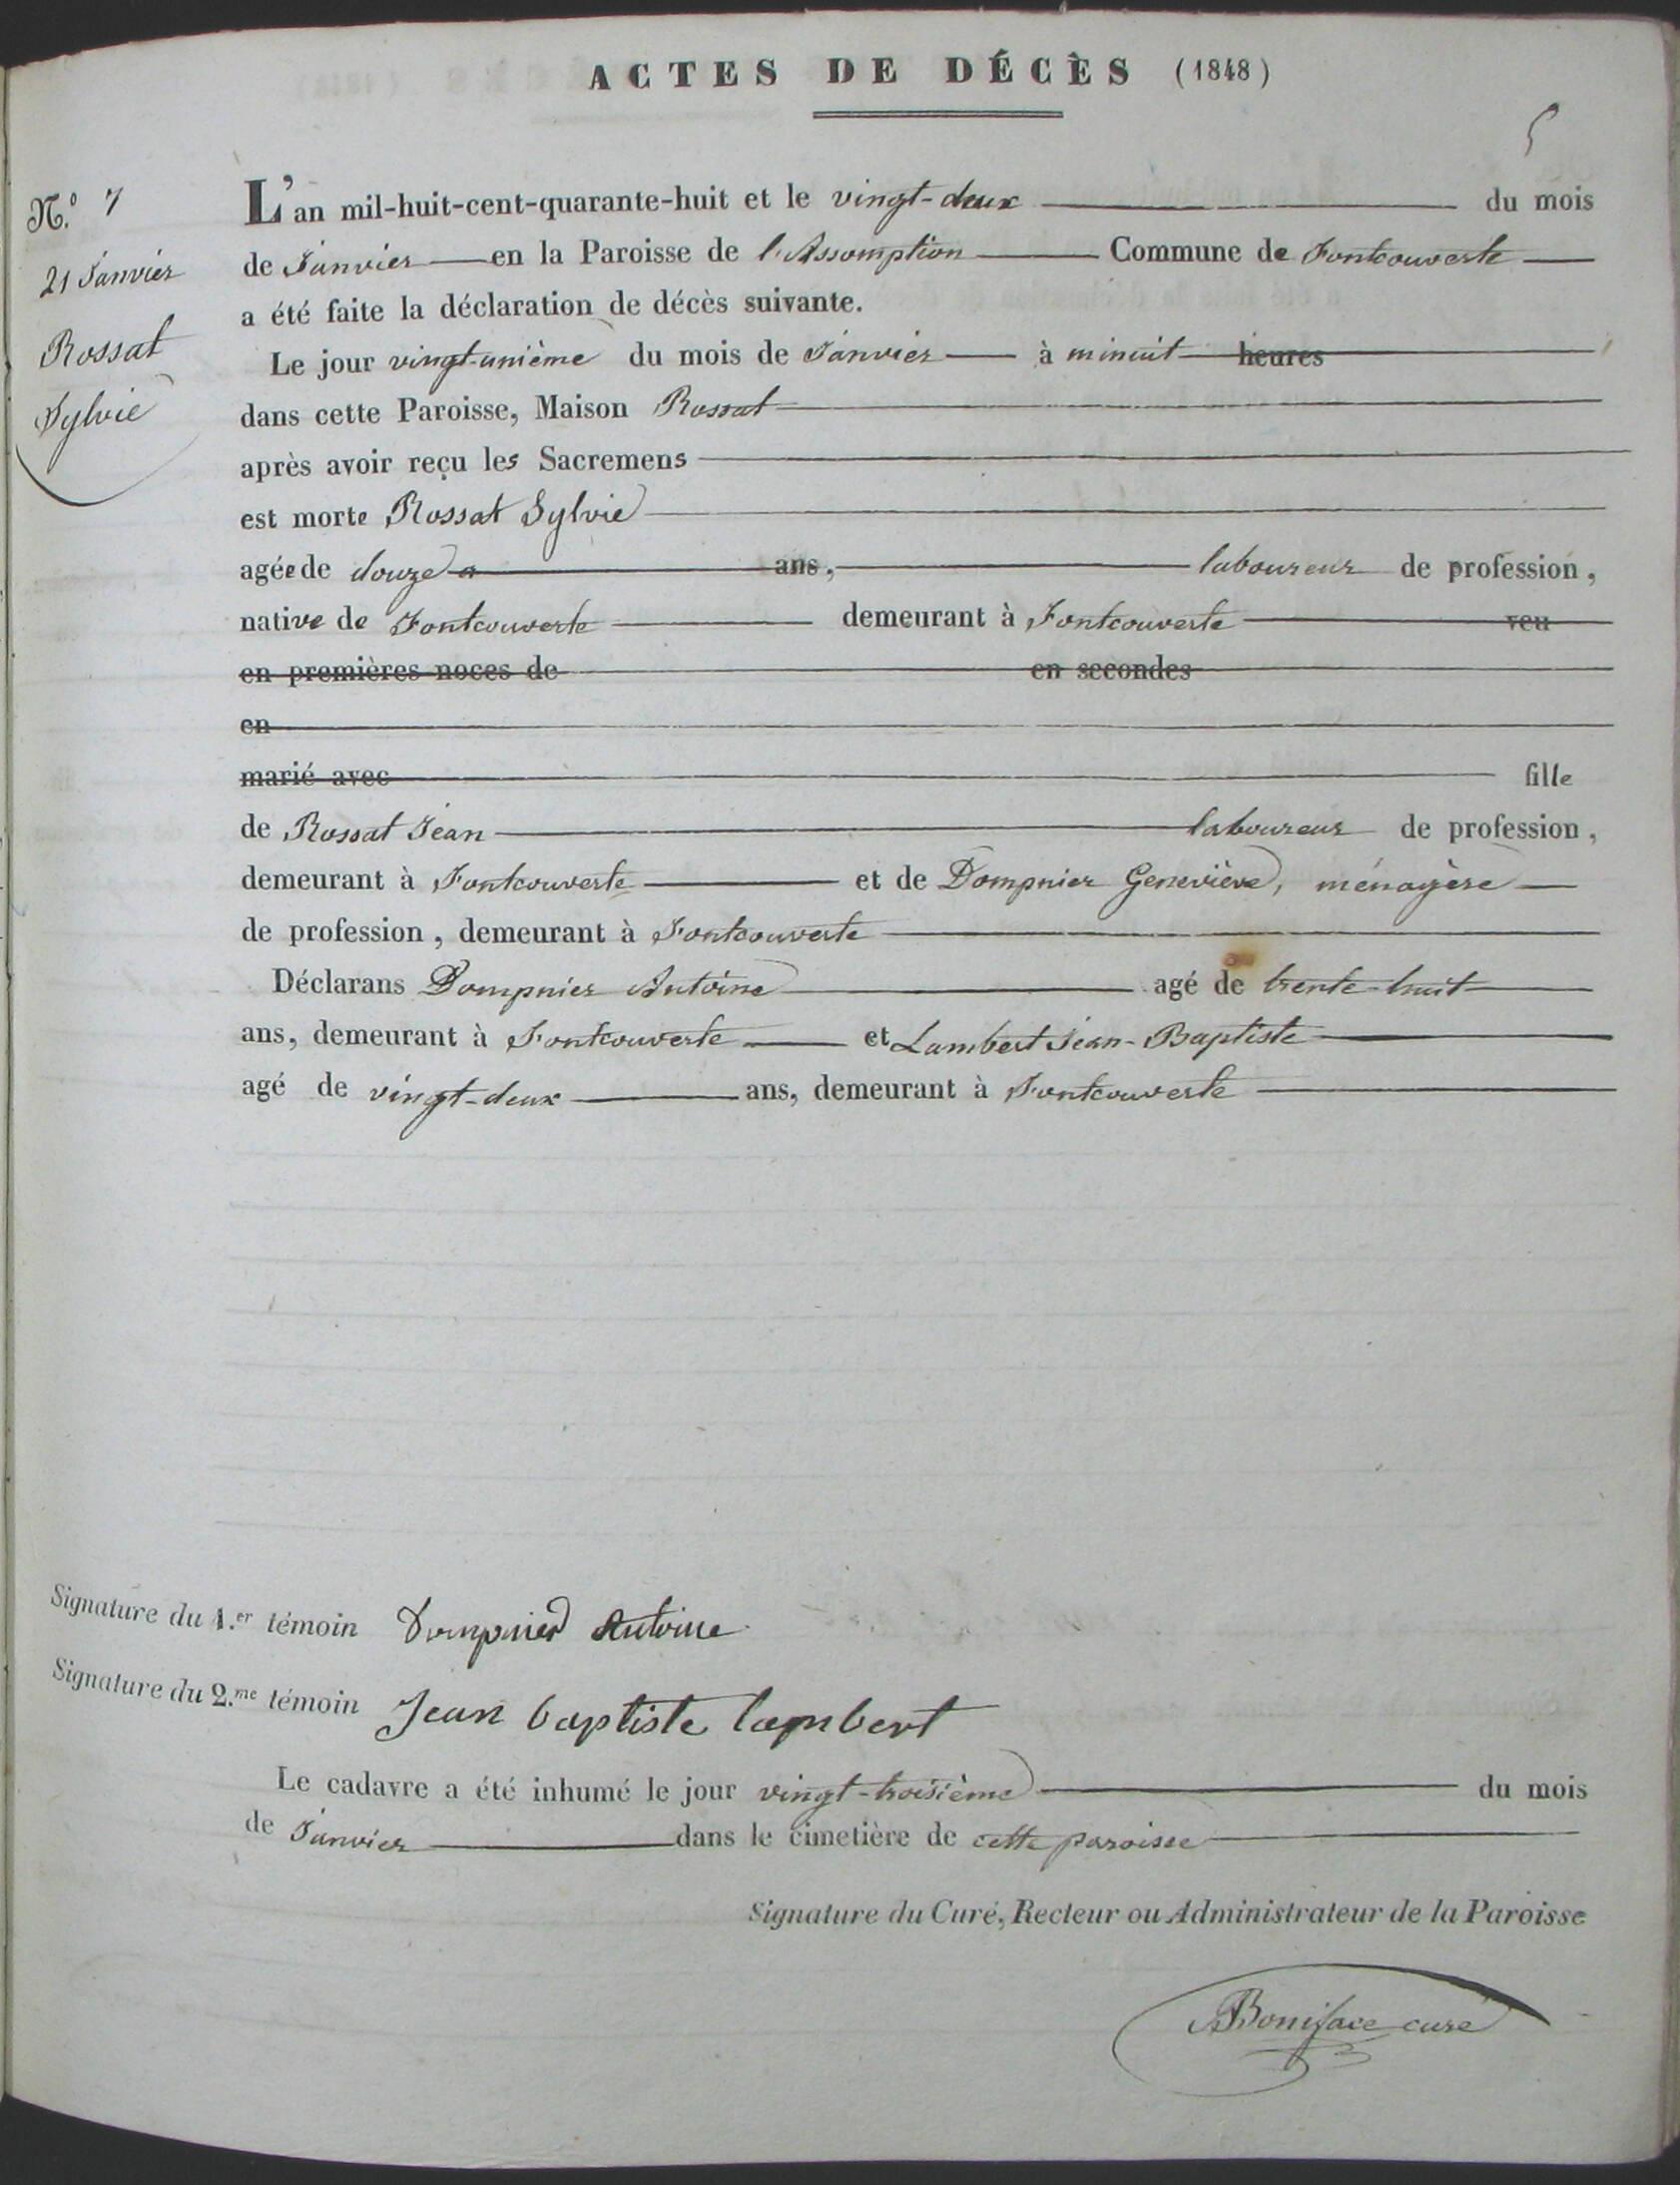 ACTES DE DÉCÈS (1848)
5
N.º 7
21 Janvier
Rossat
Sylvie
L'an mil-huit-cent-quarante-huit et le vingt-deux du mois
de Janvier en la Paroisse de l'Assomption Commune de Fontcouverte
a été faite la déclaration de décès suivante.
Le jour vingt-unième du mois de Janvier à minuit heures
dans cette Paroisse, Maison Rossat
après avoir reçu les Sacremens
est morte Rossat Sylvie
agée de douze ans, laboureur de profession,
native de Fontcouverte demeurant à Fontcouverte veu
en premières noces de en secondes
en
marié avec fille
de Rossat Jean laboureur de profession,
demeurant à Fontcouverte et de Dompnier Geneviève, ménagère
de profession, demeurant à Fontcouverte
Déclarans Dompnier Antoine agé de trente-huit
ans, demeurant à Fontcouverte et Lambert Jean-Baptiste
agé de vingt-deux ans, demeurant à Fontcouverte
Signature du 1.er témoin Dompnier Antoine
Signature du 2.me témoin Jean baptiste lambert
Le cadavre a été inhumé le jour vingt-troisième du mois
de Janvier dans le cimetière de cette paroisse
Signature du Curé, Recteur ou Administrateur de la Paroisse
Boniface curé